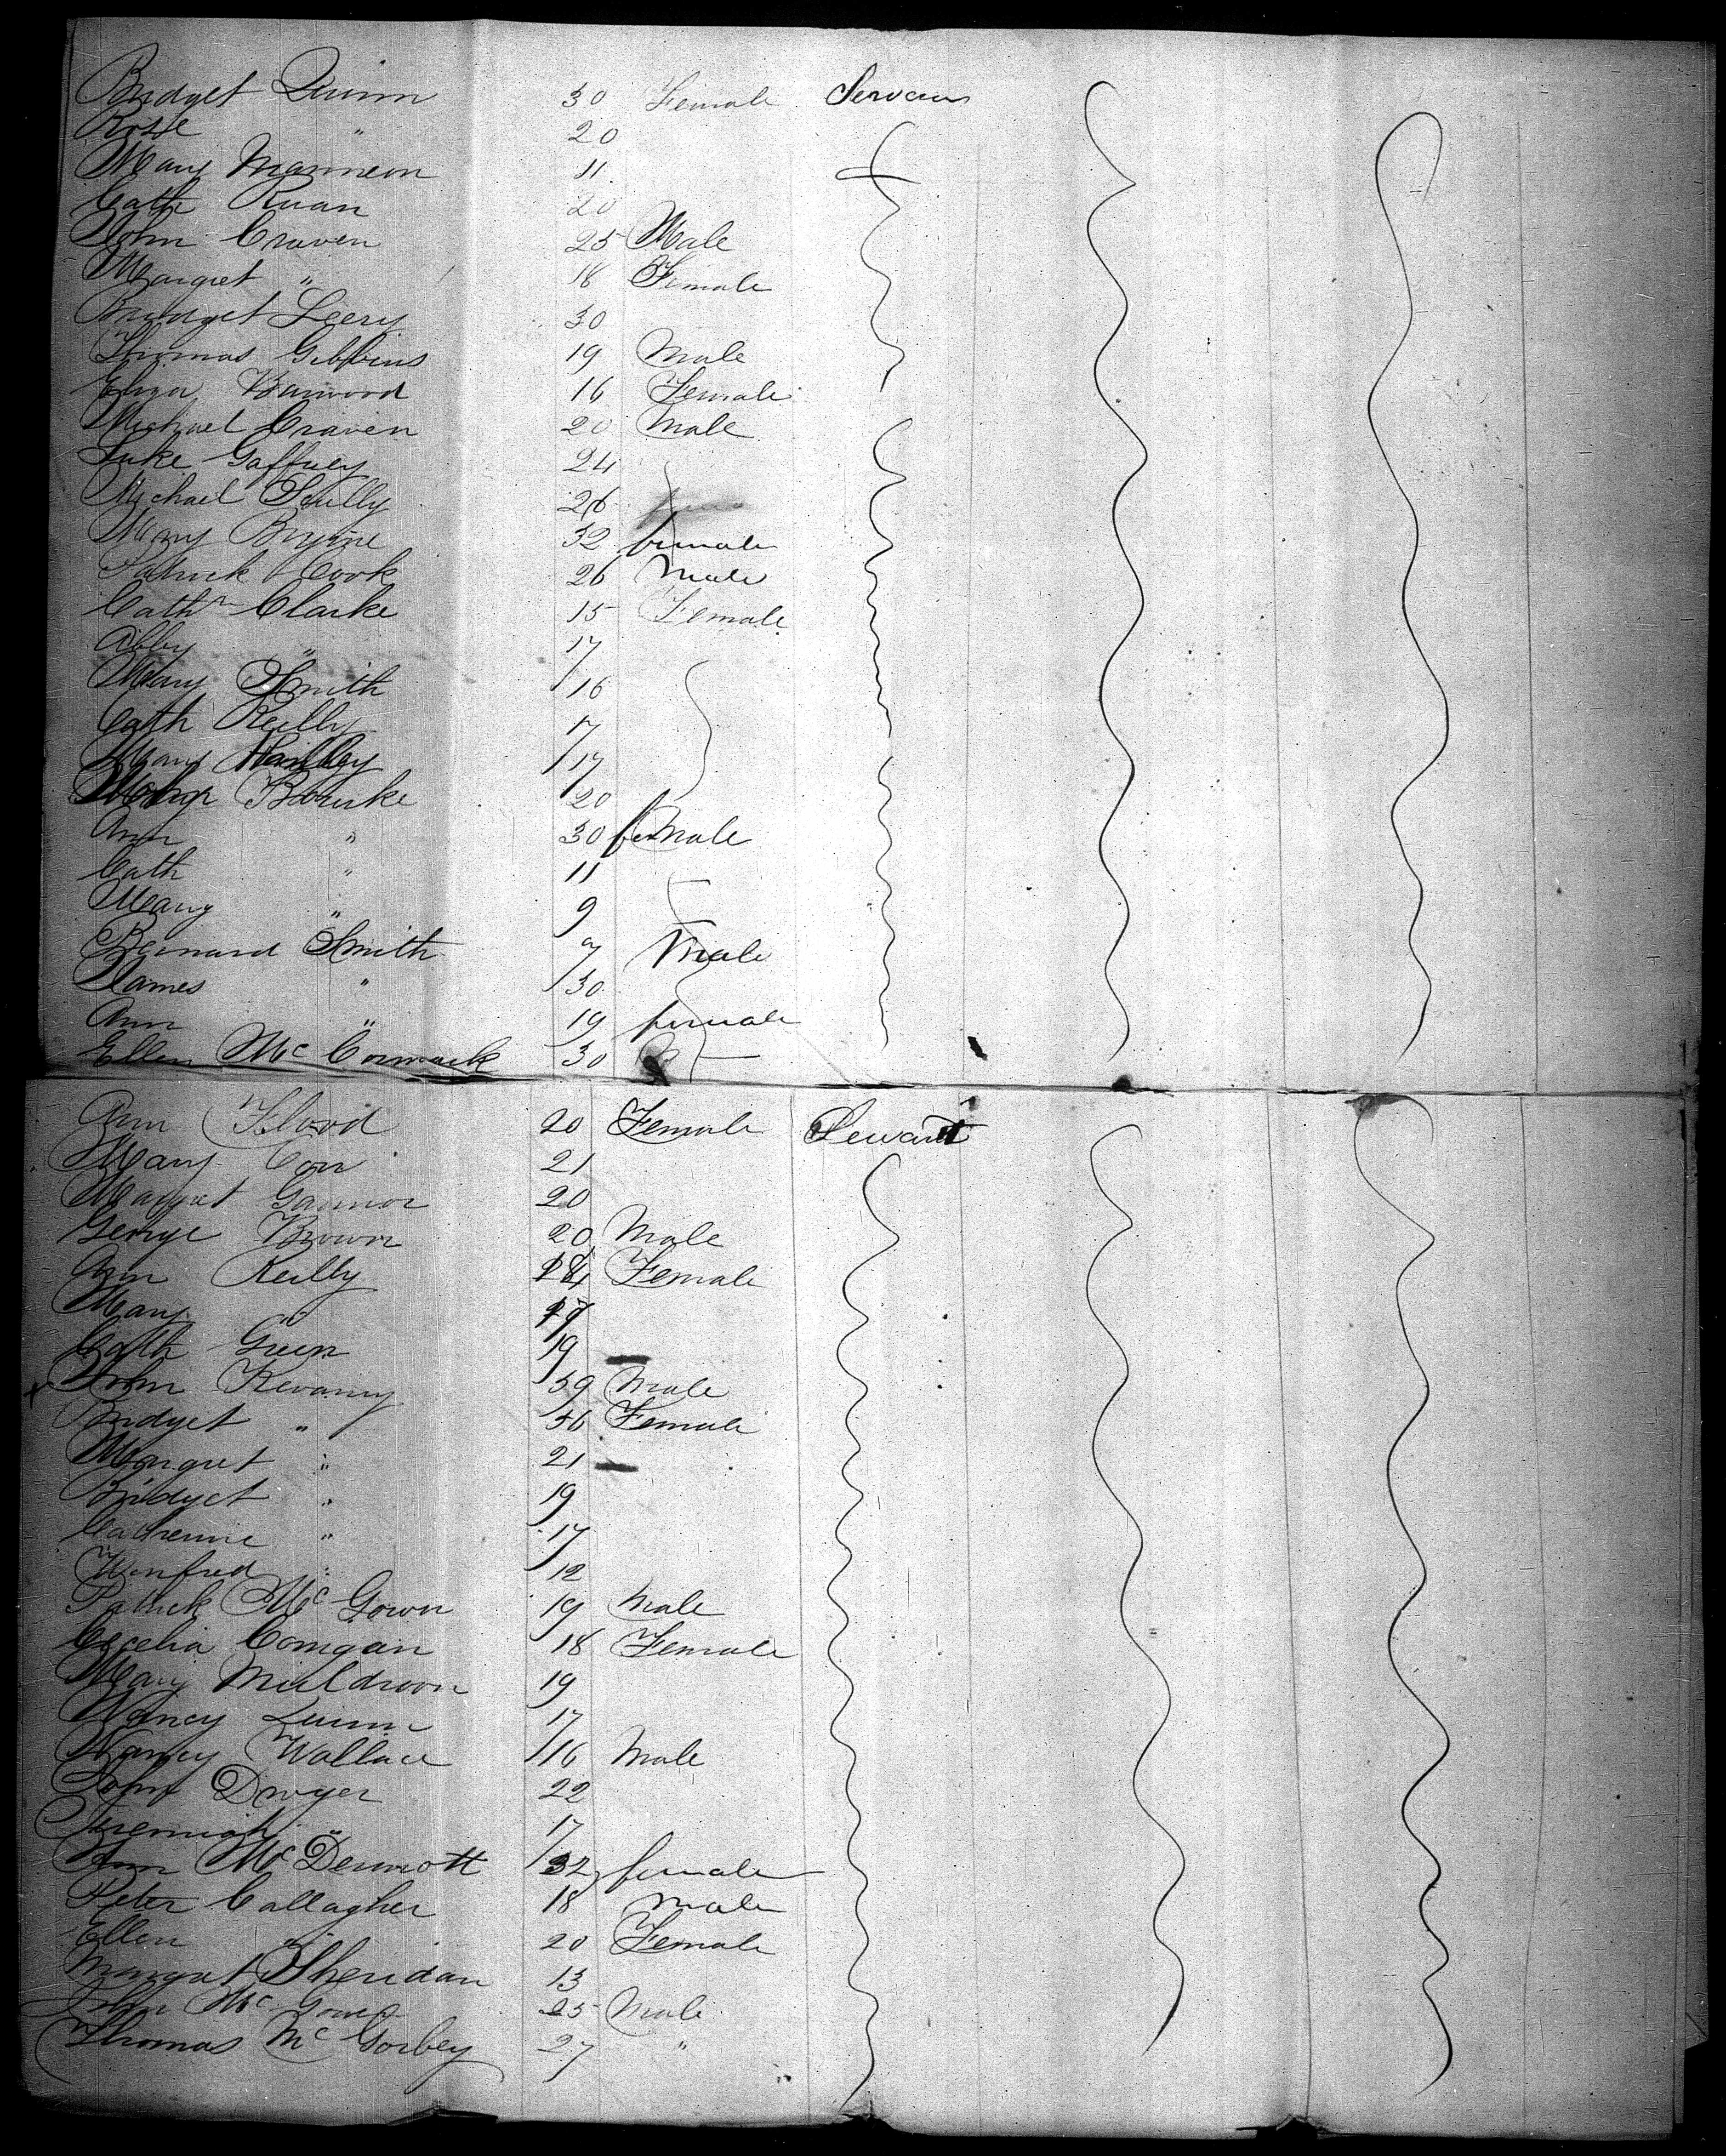 Bridget Quinn 30 Female Servan
Rose " 20
Mary Mannion 11
Cath Ruan 20
John Craven 25 Male
Margret " 18 Female
Bridget Leery 30
Thomas Gibbins 19 Male
Eliza 16 Female
Michael Craven 20 Male
Luke Gaffney 24
Michael Scully 26
Mary Byrne 32 female
Patrick Cook 26 Male
Cathn Clarke 15 Female
Abby " 17
Mary Smith 16
Cath Reilly 17
Mary 17
Bourke 20
Ann " 30 female
Cath " 11
Mary " 9
Bernard Smith 7 Male
James " 30
Ann " 19 female
Ellen McCormack 30
Ann Flood 20 Female Servant
Mary Corr 21
Margret Gannon 20
George Brown 20 Male
Ann Reilly Female
Mary "
Cath Green 19
x John Kevanny 59 Male
Bridget " 56 Female
Margret " 21
Bridget " 19
Catherine " 17
Winfred " 12
Patrick McGown 19 Male
Cecelia Comgan 18 Female
Mary Muldroon 19
Nancy Quinn 17
Nancy Wallace 16 Male
John Dwyer 22
Jeremiah " 17
Ann McDermott 32 female
Peter Callagher 18 Male
Ellen " 20 Female
Margret Sheridan 13
John McGowen 25 Male
Thomas McGorbey 27 "